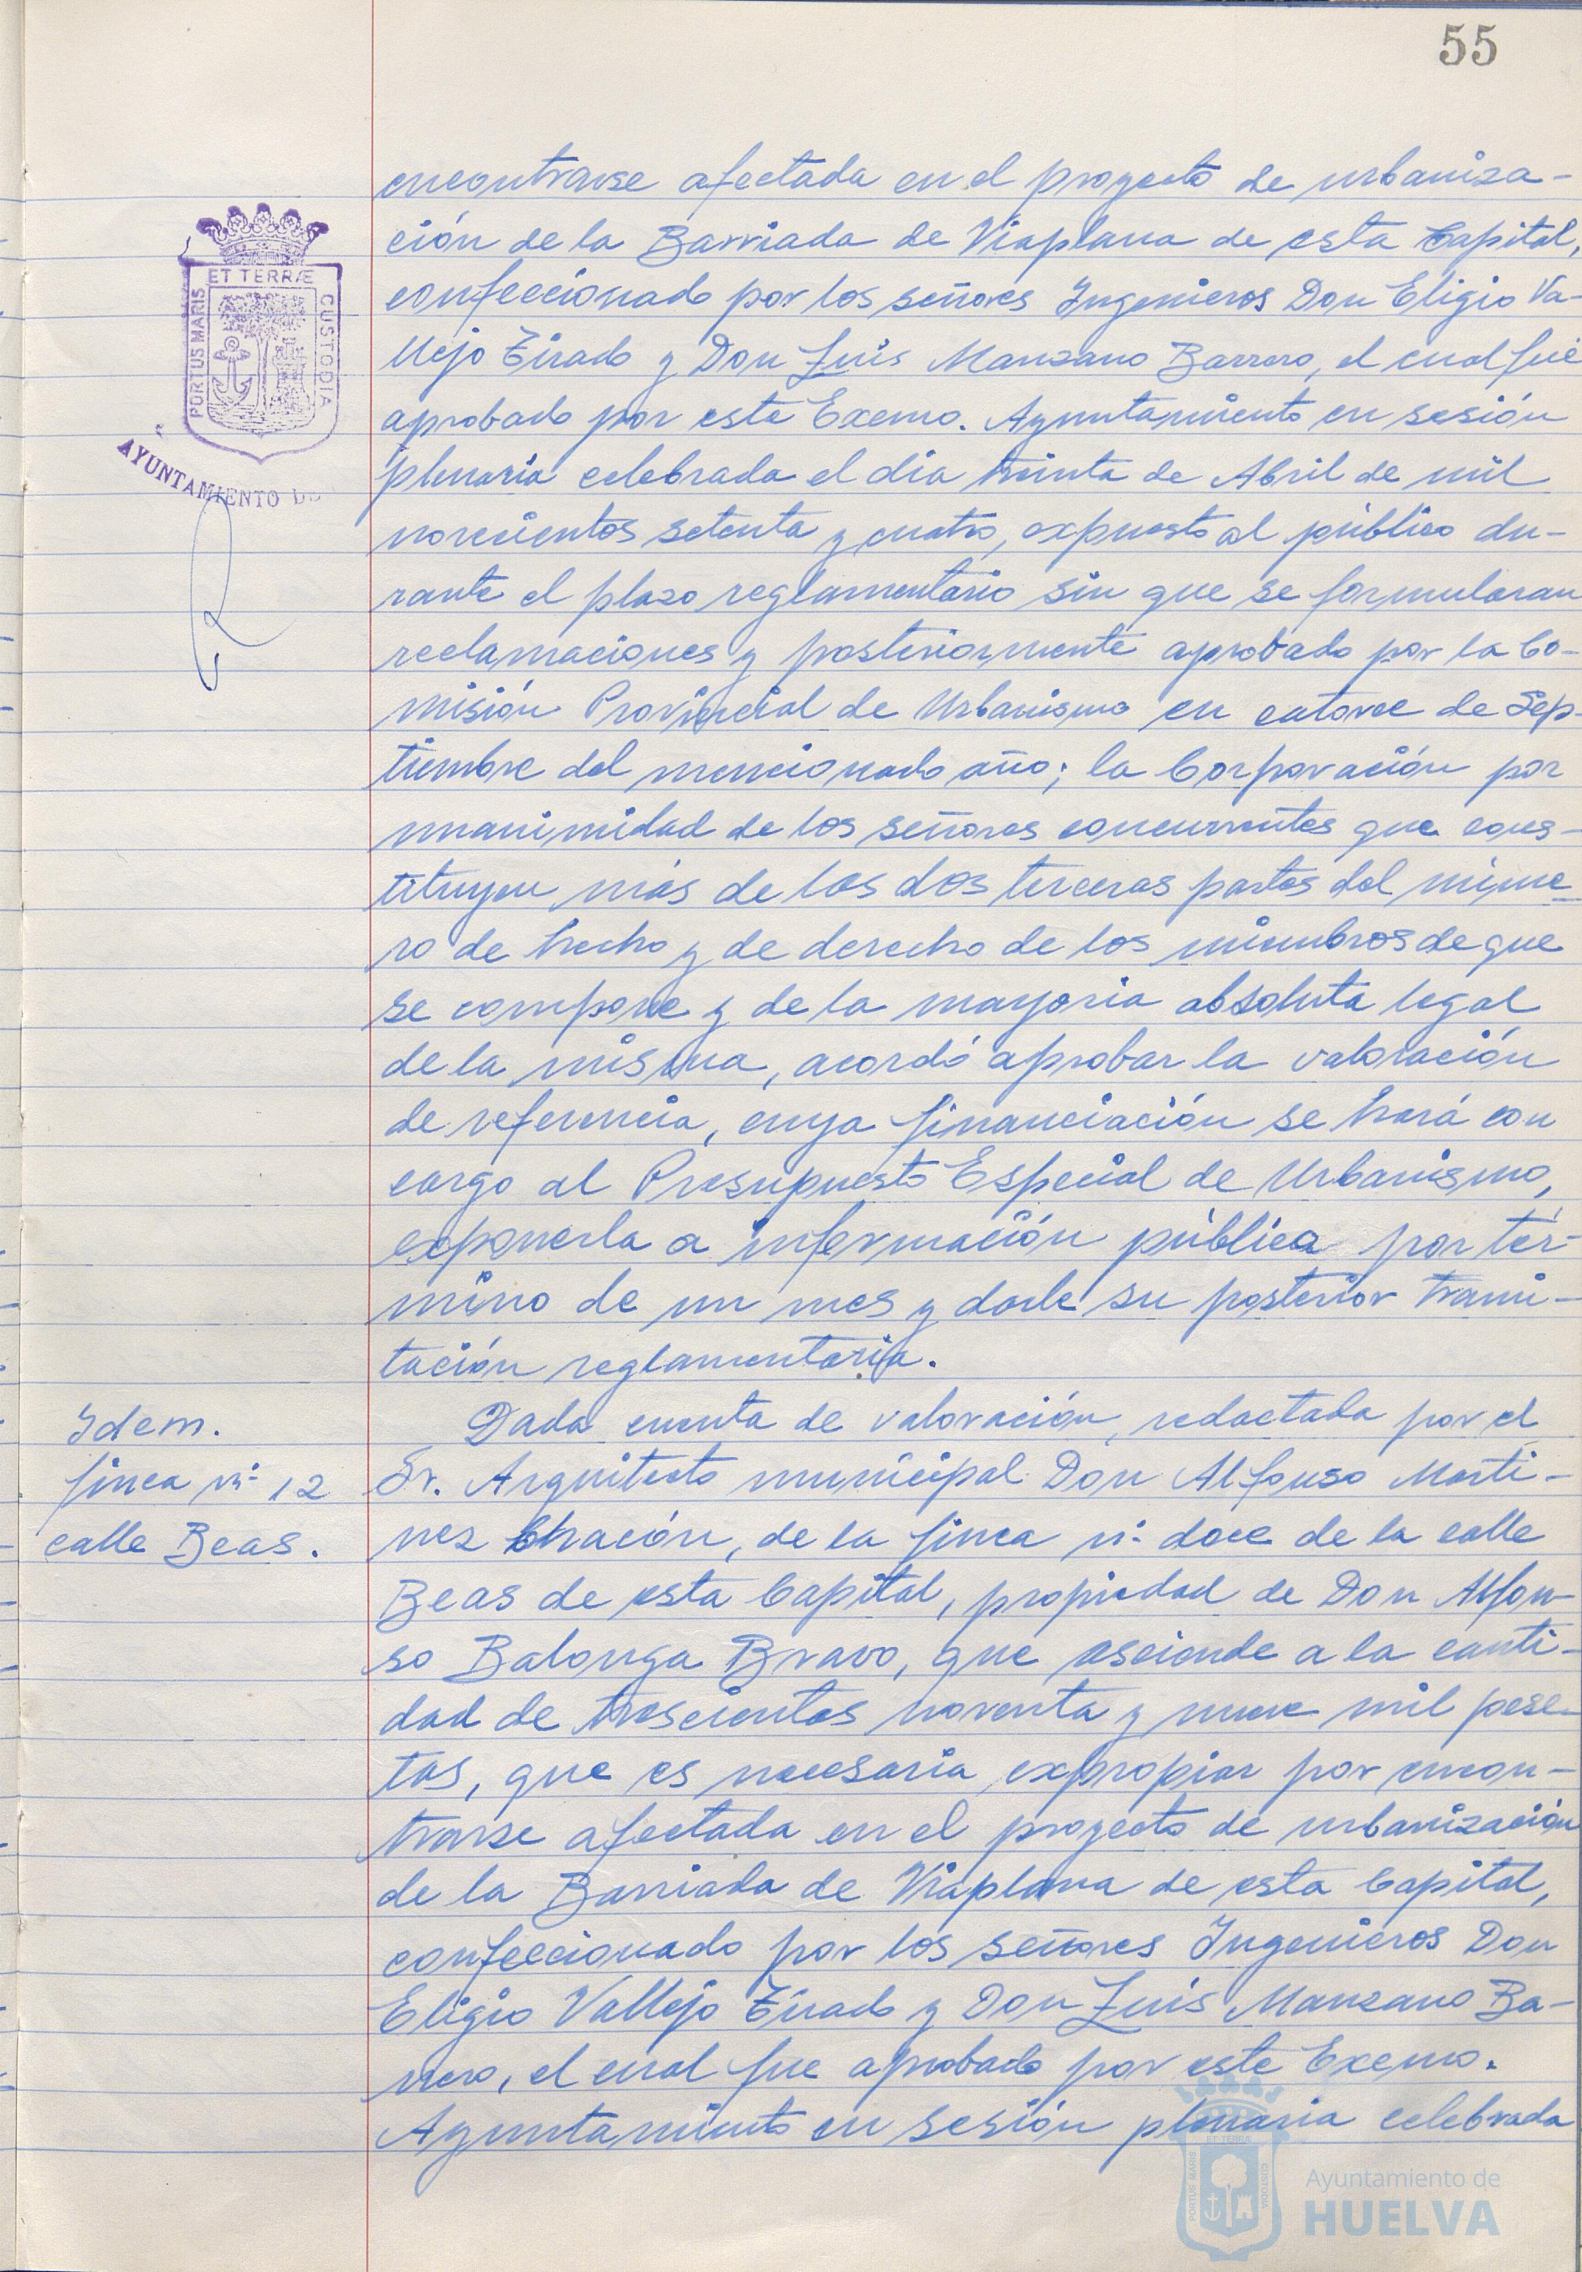 55
encontrarse afectada en el proyecto de urbaniza-
ción de la Barriada de Viaplana de esta Capital,
confeccionado por los señores Ingenieros Don Eligio Va-
llejo Tirado y Don Luis Manzano Barrero, el cual fué
aprobado por este Excmo. Ayuntamiento en sesión
plenaria celebrada el día treinta de Abril de mil
novecientos setenta y cuatro, expuesto al público du-
rante el plazo reglamentario sin que se formularan
reclamaciones y posteriormente aprobado por la Co-
misión Provincial de Urbanismo en catorce de Sep-
tiembre del mencionado año; la Corporación por
unanimidad de los señores concurrentes que cons-
tituyen más de las dos terceras partes del núme-
ro de hecho y de derecho de los miembros de que
se compone y de la mayoria absoluta legal
de la misma, acordó aprobar la valoración
de referencia, cuya financiación se hará con
cargo al Presupuesto Especial de Urbanismo,
exponerla a información pública por tér-
mino de un mes y darle su posterior trami-
tación reglamentaria.
Idem.
finca nº 12
calle Beas.
Dada cuenta de valoración, redactada por el
Sr. Arquitecto municipal Don Alfonso Marti-
nez Chacón, de la finca nº doce de la calle
Beas de esta Capital, propiedad de Don Alfon-
so Balonga Bravo, que asciende a la canti-
dad de trescientas noventa y nueve mil pese-
tas, que es necesaria expropiar por encon-
trarse afectada en el proyecto de urbanización
de la Barriada de Viaplana de esta Capital,
confeccionado por los señores Ingenieros Don
Eligio Vallejo Tirado y Don Luis Manzano Ba-
rrero, el cual fue aprobado por este Excmo.
Ayuntamiento en sesión plenaria celebrada
PORTUS MARIS ET TERRÆ CUSTODIA
AYUNTAMIENTO DE
PORTUS MARIS ET TERRÆ CUSTODIA
Ayuntamiento de
HUELVA